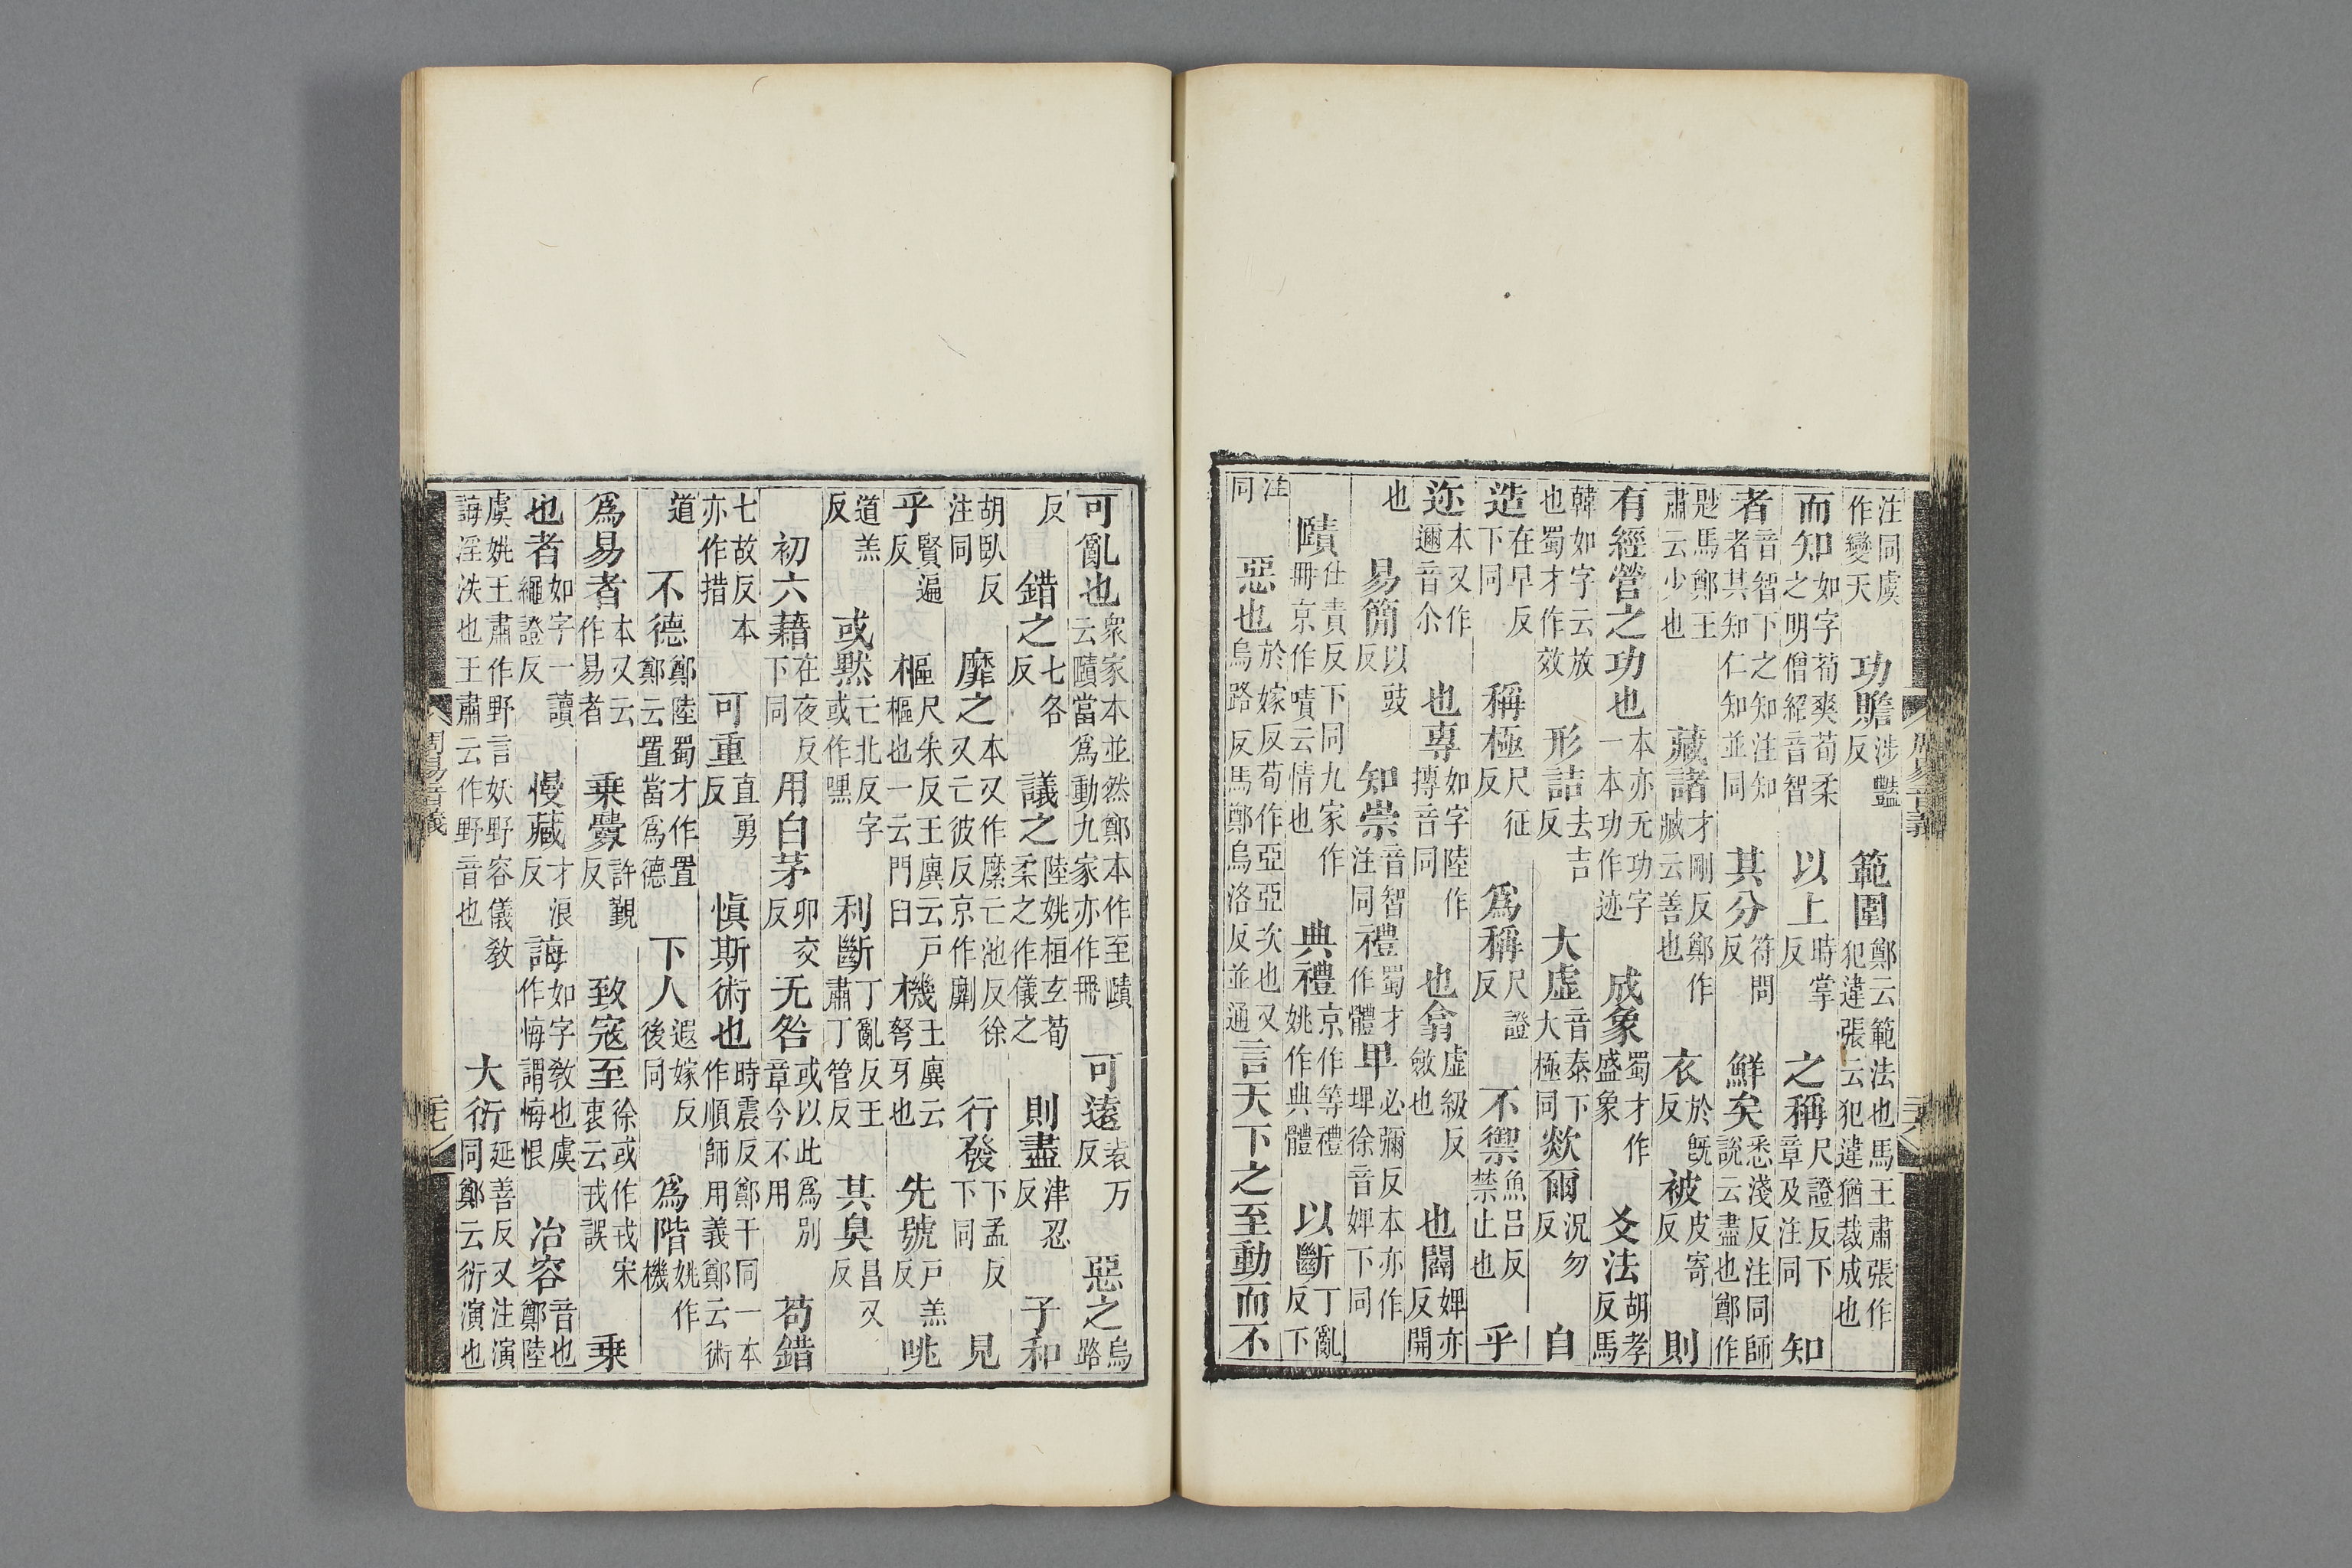 周易音義
注同虞作變天　功贍涉豔反　範圍鄭云範法也馬王肅張作犯違張云犯違猶裁成也
而知如字荀爽荀柔之明僧紹音智　以上時掌反　之稱尺證反下章及注同　知
者音智下之知注知者者其知仁知並同　其分符問反　鮮矣悉淺反注同師說云盡也鄭作
尟馬鄭王肅云少也　藏諸才剛反鄭作臧云善也　衣於旣反　被皮寄反　則
有經營之功也本亦无功字一本功作迹　成象蜀才作盛象　爻法胡孝反馬
韓如字云放也蜀才作效　形詰去吉反　大虛音泰下大極同　欻爾況勿反　自
造在早反下同　稱極尺征反　爲稱尺證反　不禦魚呂反禁止也　乎
迩本又作邇音尒　也專如字陸作摶音同　也翕虛級反斂也　也闢婢亦反開
也　易簡以豉反　知崇音智注同　禮蜀才作體　卑必彌反本亦作埤徐音婢下同
賾仕責反下同九家作冊京作嘖云情也　典禮京作等禮姚作典體　以斷丁亂反下
注同　惡也於嫁反荀作亞亞次也又烏路反馬鄭烏洛反並通　言天下之至動而不
可亂也衆家本並然鄭本作至賾云賾當爲動九家亦作冊　可遠袁万反　惡之烏路
反　錯之七各反　議之陸姚桓玄荀柔之作儀之　則盡津忍反　子和
胡臥反注同　靡之本又作縻亡池反徐又亡彼反京作劘　行發下孟反下同　見
乎賢遍反　樞尺朱反王廙云戶樞也一云門臼　機王廙云弩牙也　先號戶羔反　咷
道羔反　或默亡北反字或作嘿　利斷丁亂反王肅丁管反　其臭昌又反
初六藉在夜反下同　用白茅卯交反　无咎或以此爲別章今不用　苟錯
七故反本亦作措　可重直勇反　愼斯術也時震反鄭干同一本作順師用義鄭云術
道　不德鄭陸蜀才作置鄭云置當爲德　下人遐嫁反後同　爲階姚作機
爲易者本又云作易者　乗釁許覲反　致寇至徐或作戎宋衷云戎誤　乗
也者如字一讀繩證反　慢藏才浪反　誨如字敎也虞作悔謂悔恨　冶容音也鄭陸
虞姚王肅作野言妖野容儀敎誨淫泆也王肅云作野音也　大衍延善反又注演同鄭云衍演也
周易音義